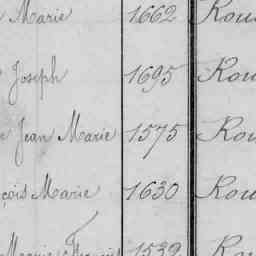 Marie 1662 Rou
Joseph 1695 Rou
Jean Marie 1575 Rou
çois Marie 1630 Rou
1539 Rou